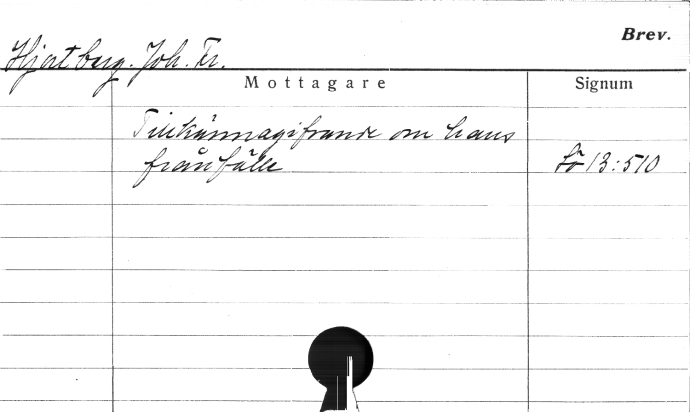 Brev.
Hjortberg. Joh. Fr.
Mottagare Signum
Tillkännagifvande om hans
frånfälle Lö 13:510